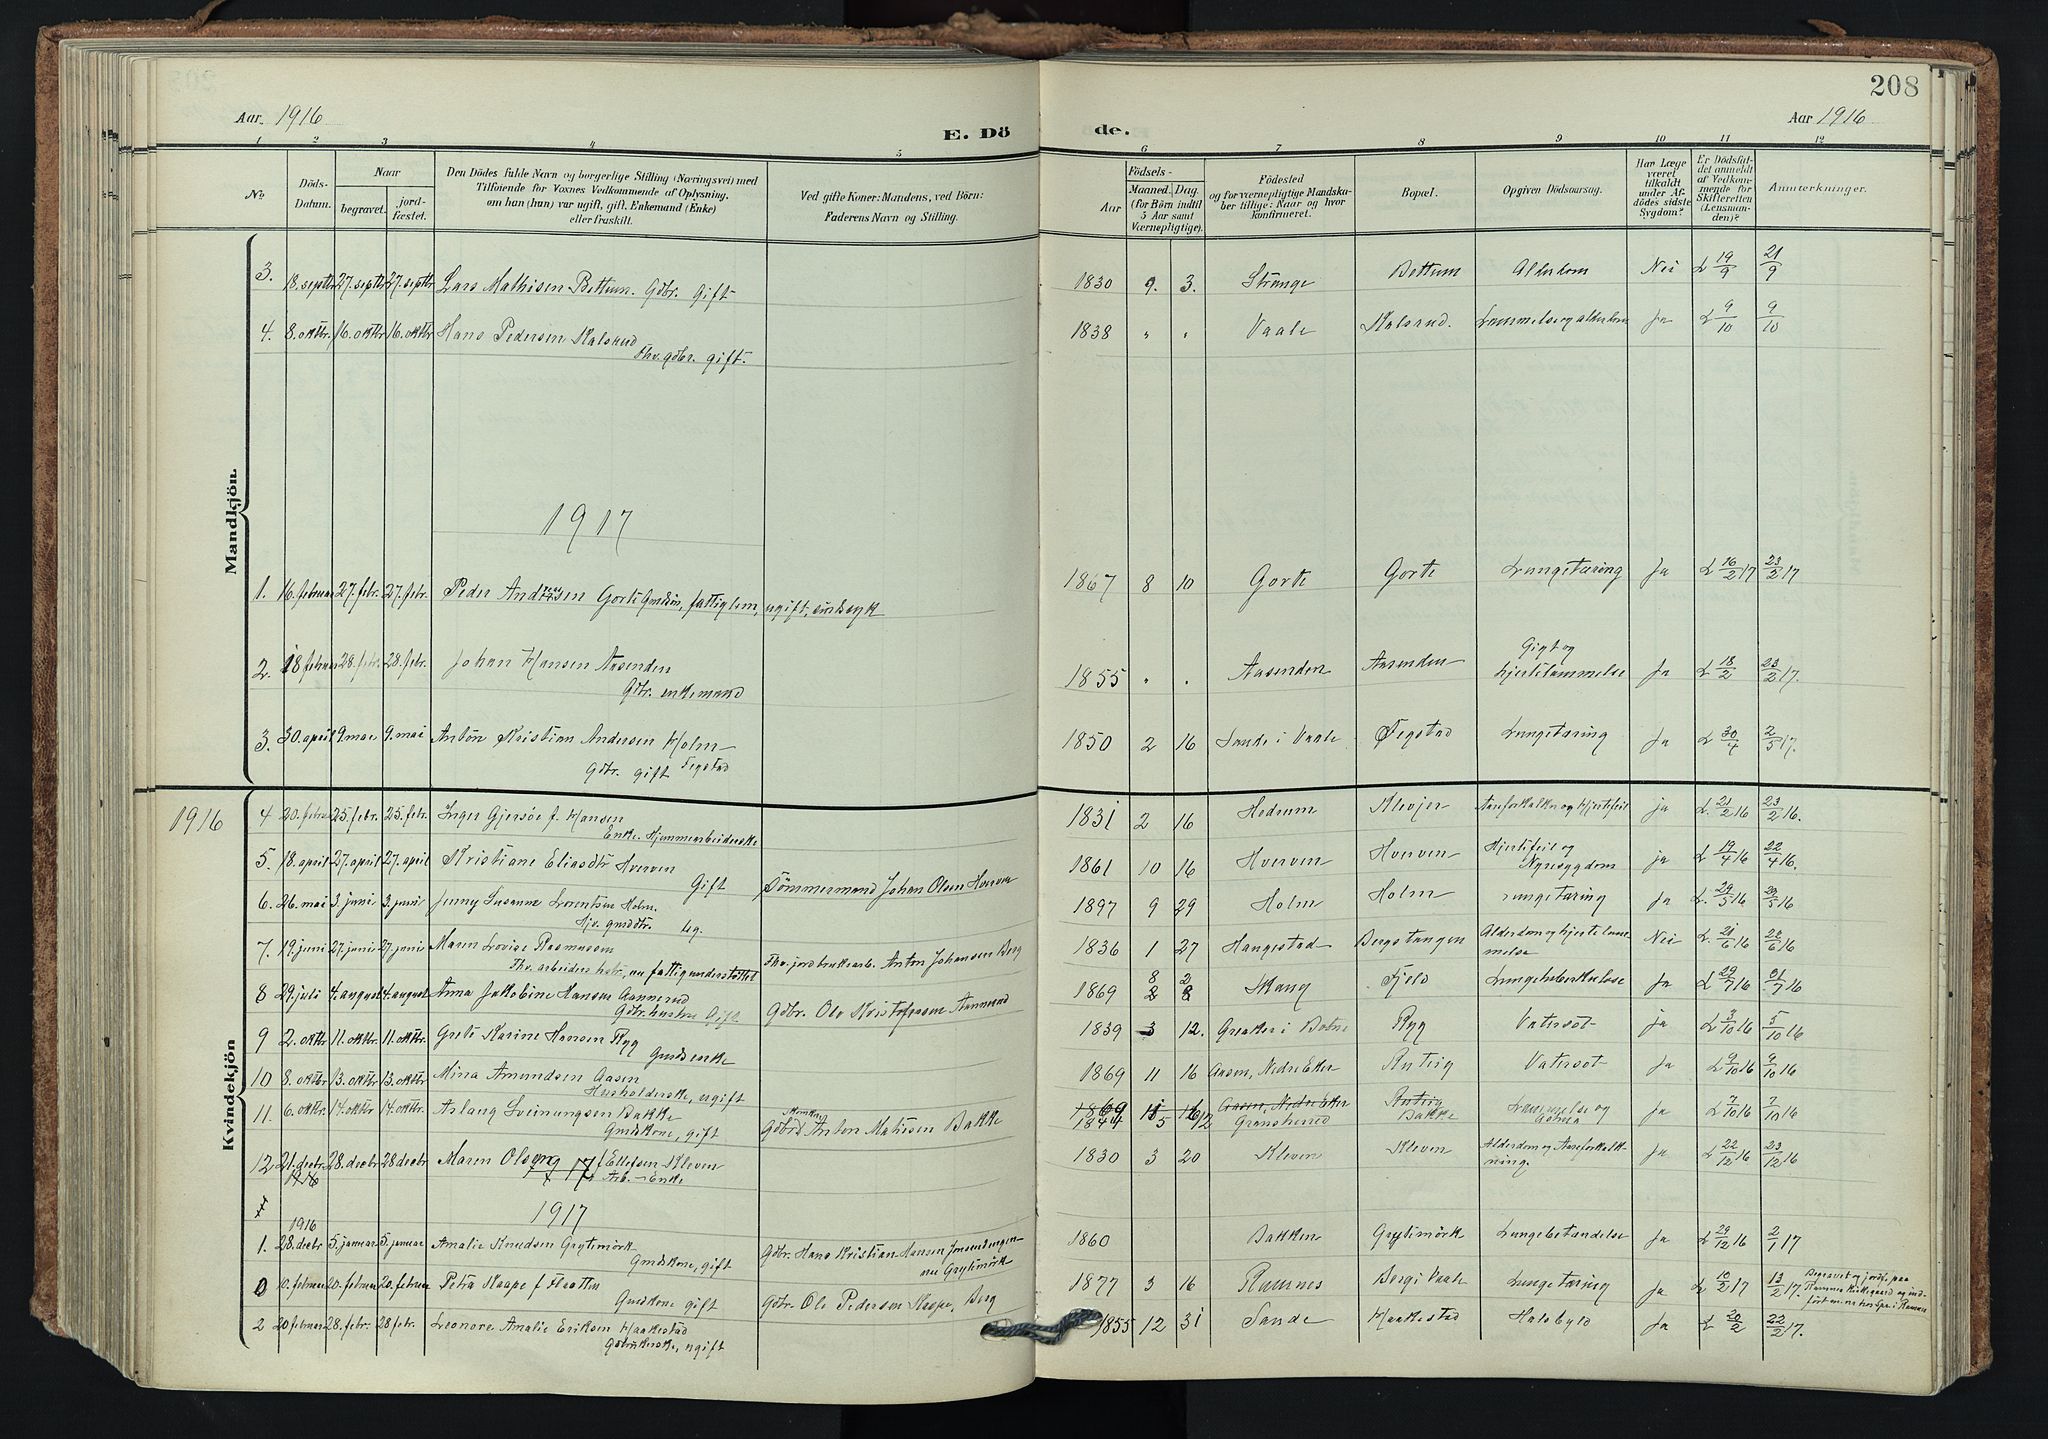 208
Aar. 1916
E. Dö
de.
Aar 1916
1 2 3 4 5 6 7 8 9 10 11 12
No.
Döds-
Datum.
Naar
begravet.
jord-
fæstet.
Den Dödes fulde Navn og borgerlige Stilling (Næringsvei) med
Tilföiende for Voxnes Vedkommende af Oplysning,
om han (hun) var ugift, gift, Enkemand (Enke)
eller fraskilt.
Ved gifte Koner: Mandens, ved Börn:
Faderens Navn og Stilling.
Födsels-
Aar
Maaned. Dag.
(for Börn indtil
5 Aar samt
Værnepligtige).
Födested
og for værnepligtige Mandska-
ber tillige: Naar og hvor
konfirmeret.
Bopæl.
Opgiven Dödsaarsag.
Har Læge
været
tilkaldt
under Af-
dödes sidste
Sygdom?
Er Dödsfal-
det anmeldt
af Vedkom-
mende for
Skifteretten
(Lensman-
den)?
Anmærkninger.
Mandkjön.
3. 18. septbr 27. septbr 27. septbr Lars Mathisen Bettum. Gdbr. Gift 1830 9. 3. Strange Bettum Alderdom Nei L 19/9 21/9
4. 8. oktbr. 16. oktbr 16. oktbr Hans Pedersen Kalsrud 1838 " " Vaale Kalsrud. Lammelse og alderdom Ja L 9/10 9/10
Fhv. gdbr. gift.
1917
1. 16. februar 27. febr. 27. febr. Peder Andresen Gorte Gmdsøn, fattiglem, ugift, sindssyk 1867 8 10 Gorte Gorte Lungetæring Ja L 16/2 17 23/2 17
2. 18 februar 28. febr. 28. febr. Johan Hansen Aasenden 1855 " . Aasenden Aasenden Gigt og
hjertelammelse Ja L 18/2 23/2 17.
Gdbr. enkemand
3. 30. april 9. mai 9. mai Anton Kristian Andersen Holm 1850 2 16 Sande i Vaale Fegstad Lungetæring Ja L 30/4 2/5 17.
Gdbr. gift Fegstad
Kvindekjön
1916 4 20. februar 25. febr. 25. febr. Inger Gjersøe f. Hansen 1831 2 16 Hedrum Klevjer Aareforkalkn og Hjertefeil ja L. 21/2 16 23/2 16.
Enke. Hjemmearbeiderske
5. 18. april 27. april 27. april Kristiane Eliasdtr Hverven
Gift Tömmermand Johan Olsen Hverven 1861 10 16 Hverven Hverven Hjertefeil og
Nyresygdom ja L 19/4 16 22/4 16.
6. 26. mai 3. juni 3. juni Jenny Susanne Lorentsen Holm. 1897 9 29 Holm Holm Lungetæring Ja L. 29/5 16 29/5 16
Hjv. gmddtr. Ug.
7. 19. juni 27. juni 27. juni Maren Lovise Rasmussen
Fhv. arbeiders hstr., nu fattigunderstøttet Fhv. jordbruksarb. Anton Johansen Berg 1836 1 27 Hangestad Bergstangen Alderdom og hjertelam-
melse Nei L 21/6 16 22/6 16
8 29. juli 4. august 4. august Anna Jakobine Hansen Aannerud
Gdbr. hustru Gift Gdbr. Ole Kristofersen Aannerud 1869 8 2 Skaug Fjeld Lungetuberkulose Ja L 29/7 16 31/7 16
9 2. oktbr 11. oktbr. 11. oktbr. Grete Karine Hansen Ryg 1839 3 12. Greaker i Botne Ryg Vatersot ja L 3/10 16 5/10 16
Gmds enke
10 8. oktbr 13. oktbr 13. oktbr Mina Amundsen Aasen 1869 11 16 Aasen, Nedre Eker Rutig Vatersot Ja L 9/10 16 9/10 16
Husholderske, ugift
11. 6. oktbr. 14. oktbr 14. oktbr Aslaug Sveinungsen Bakke
Gmdskone, gift Gdbrd Anton Mathisen Bakke 1869 11 16 Aasen, Nedre Eker Rutig
1844 5 12 Gransherred Bakke Lammelse og
astma Ja L 7/10 16 7/10 16
12 21. decbr 28. decbr 28 decbr Maren Olseng f Ellefsen Kleven 1830 3 20 Kleven Kleven Alderdom og Aareforkalk-
ning. Ja L 22/12 16 23/12 16
1916 1917 Arb. - Enke
1917
1916
1. 28. decbr 5. januar 5. januar Amalie Knudsen Grytimörk
Gmdskone, gift Gdbr. Hans Kristian Hansen
nu Grytimörk 1860 Bakken Grytimörk Lungebetændelse Ja L 29/12 16 2/1 17
0 0. februar 20. februar 20. februar Petra Skaspe f Flaatten
Gmdskone gift Gdbr. Ole Pedersen Skaspe, Berg 1877 3 16 Ramnes Berg i Vaale Lungetæring Ja L 10/2 17 13/2 17. Begravet og jordf. paa
Ramnes Kirkegaard og ind-
fört
2 20 februar 28. febr. 28 febr. Leonore Amalie Eriksen Haakestad 1855 12 31 Sande Haakestad Halsbyld Ja L 20/2 22/2 17.
Gdbrukerske, ugift